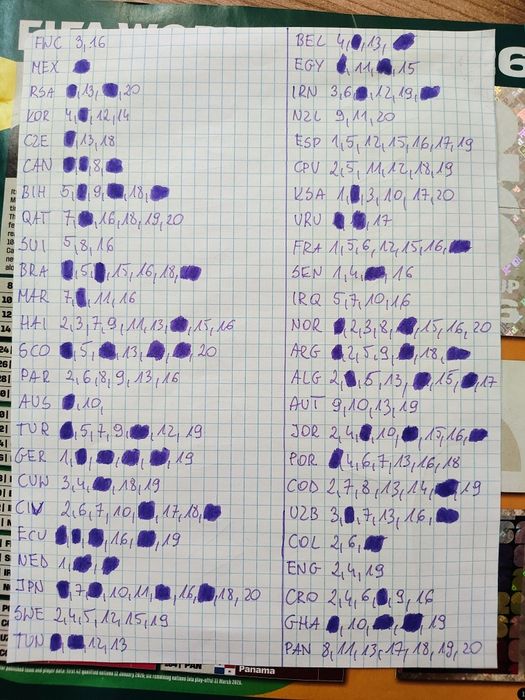 FIFA WOR
6
FWC 3,16
MEX
RSA 13, 20
KOR 4, 12,14
CZE 13,18
CAN 8,
BIH 5, 9, 18,
QAT 7, 16,18,19,20
SUI 5,8,16
BRA 5, 15,16,18,
MAR 7, 11,16
HAI 2,3,7,9,11,13, 15,16
SCO 5, 13, 20
PAR 2,6,8,9,13,16
AUS 10,
TUR 5,7,9, 12,19
GER 1, 19
CUW 3,4, 18,19
CIV 2,6,7,10, 17,18,
ECU 16, 19
NED 1,
JPN 7, 10,11, 16, 18,20
SWE 2,4,5,12,15,19
TUN 12,13
BEL 4, 13,
EGY 11, 15
IRN 3,6, 12,19,
NZL 9,11,20
ESP 1,5,12,15,16,17,19
CPV 2,5,11,12,18,19
KSA 1, 3,10,17,20
URU 17
FRA 1,5,6,12,15,16,
SEN 1,4, 16
IRQ 5,7,10,16
NOR 2,3,8, 15,16,20
ARG 2,5,9, 18,
ALG 2, 5,13, 15, 17
AUT 9,10,13,19
JOR 2,4, 10, 15,16,
POR 4,6,7,13,16,18
COD 2,7,8,13,14, 19
UZB 3, 7,13,16,
COL 2,6,
ENG 2,4,19
CRO 2,4,6, 9,16
GHA 10, 19
PAN 8,11,13,17,18,19,20
Panama